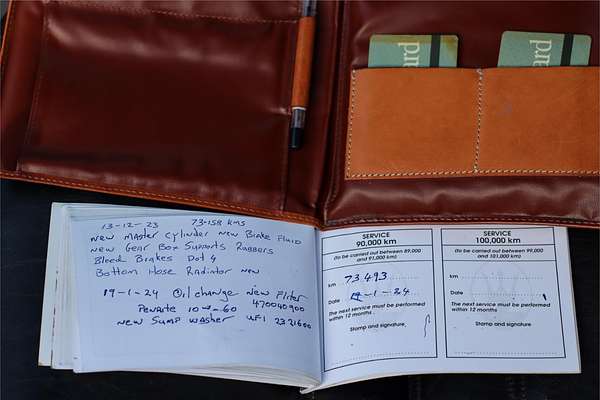 ard
ard
13-12-23 73-158 KMS
NEW MASTER CYLINDER NEW BRAKE FLUID
NEW GEAR BOX SUPPORTS RUBBERS
BLEED BRAKES DOT 4
BOTTOM HOSE RADIATOR NEW
19-1-24 OIL CHANGE NEW FILTER
470040900
PENRITE 10W-60
NEW SUMP WASHER UFI 2321600
SERVICE
90,000 km
(to be carried out between 89,000
and 91,000 km)
km 73493
Date -1-24
The next service must be performed
within 12 months
Stamp and signature
SERVICE
100,000 km
(to be carried out between 99,000
and 101,000 km)
km
Date
The next service must be performed
within 12 months
Stamp and signature